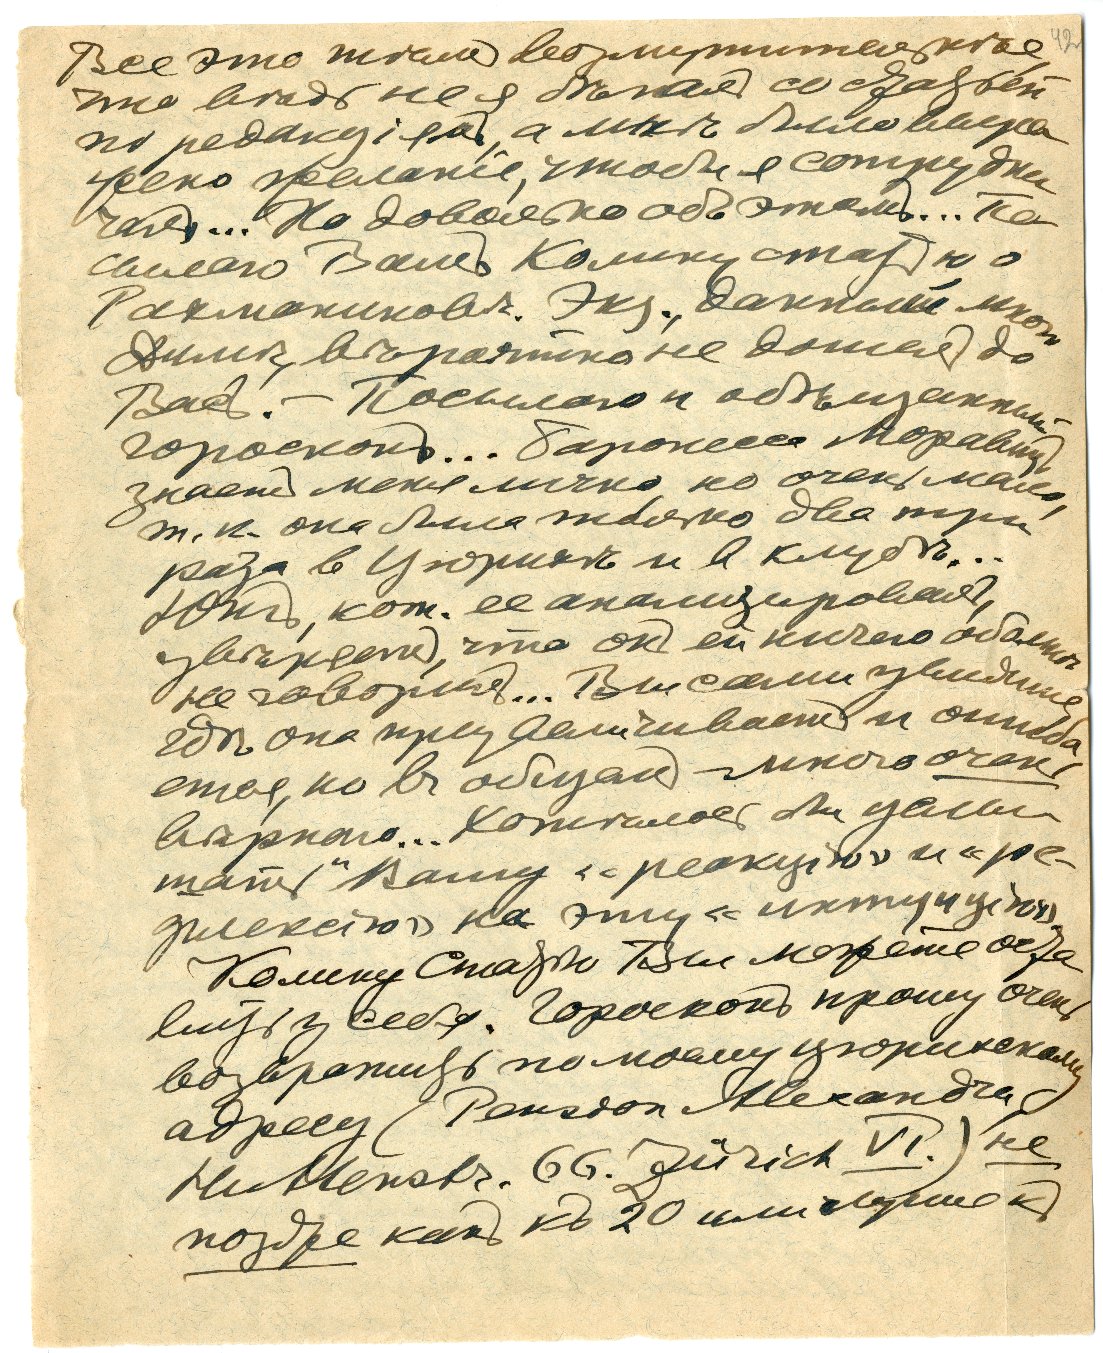 Все это тѣмъ возмутительнѣе,
что вѣдь не я бѣгалъ со статьей
по редакціямъ, а мнѣ было выра
жено желаніе, чтобы я сотрудни
чалъ... Но довольно объ этомъ... По
сылаю Вамъ Колину статью о
Рахманиновѣ. Экз., данный мною
Димѣ, вѣроятно не дошелъ до
Васъ. — Посылаю и обѣщанный
гороскопъ... Баронесса Моравиц
знаетъ меня лично, но очень мало,
т.к. она была только два три
раза в Цюрихѣ и в клубѣ...
Юнгъ, кот. ее анализировалъ,
увѣряетъ, что онъ ей ничего обо мнѣ
не говорилъ... Вы сами увидите
гдѣ она преувеличиваетъ и ошиба
ется, но въ общемъ — много очень
вѣрнаго... Хотѣлось бы услы-
шать Вашу «реакцію» и «ре-
флексію» на эту «интуицію».
Колину статью Вы можете оста
вить у себя. Гороскопъ прошу очень
возвратить по моему цюрихскому
адресу (Pension Alexandra
Huttenstr. 66. Zürich VI.) не
поздѣе какъ къ 20 или лучше къ